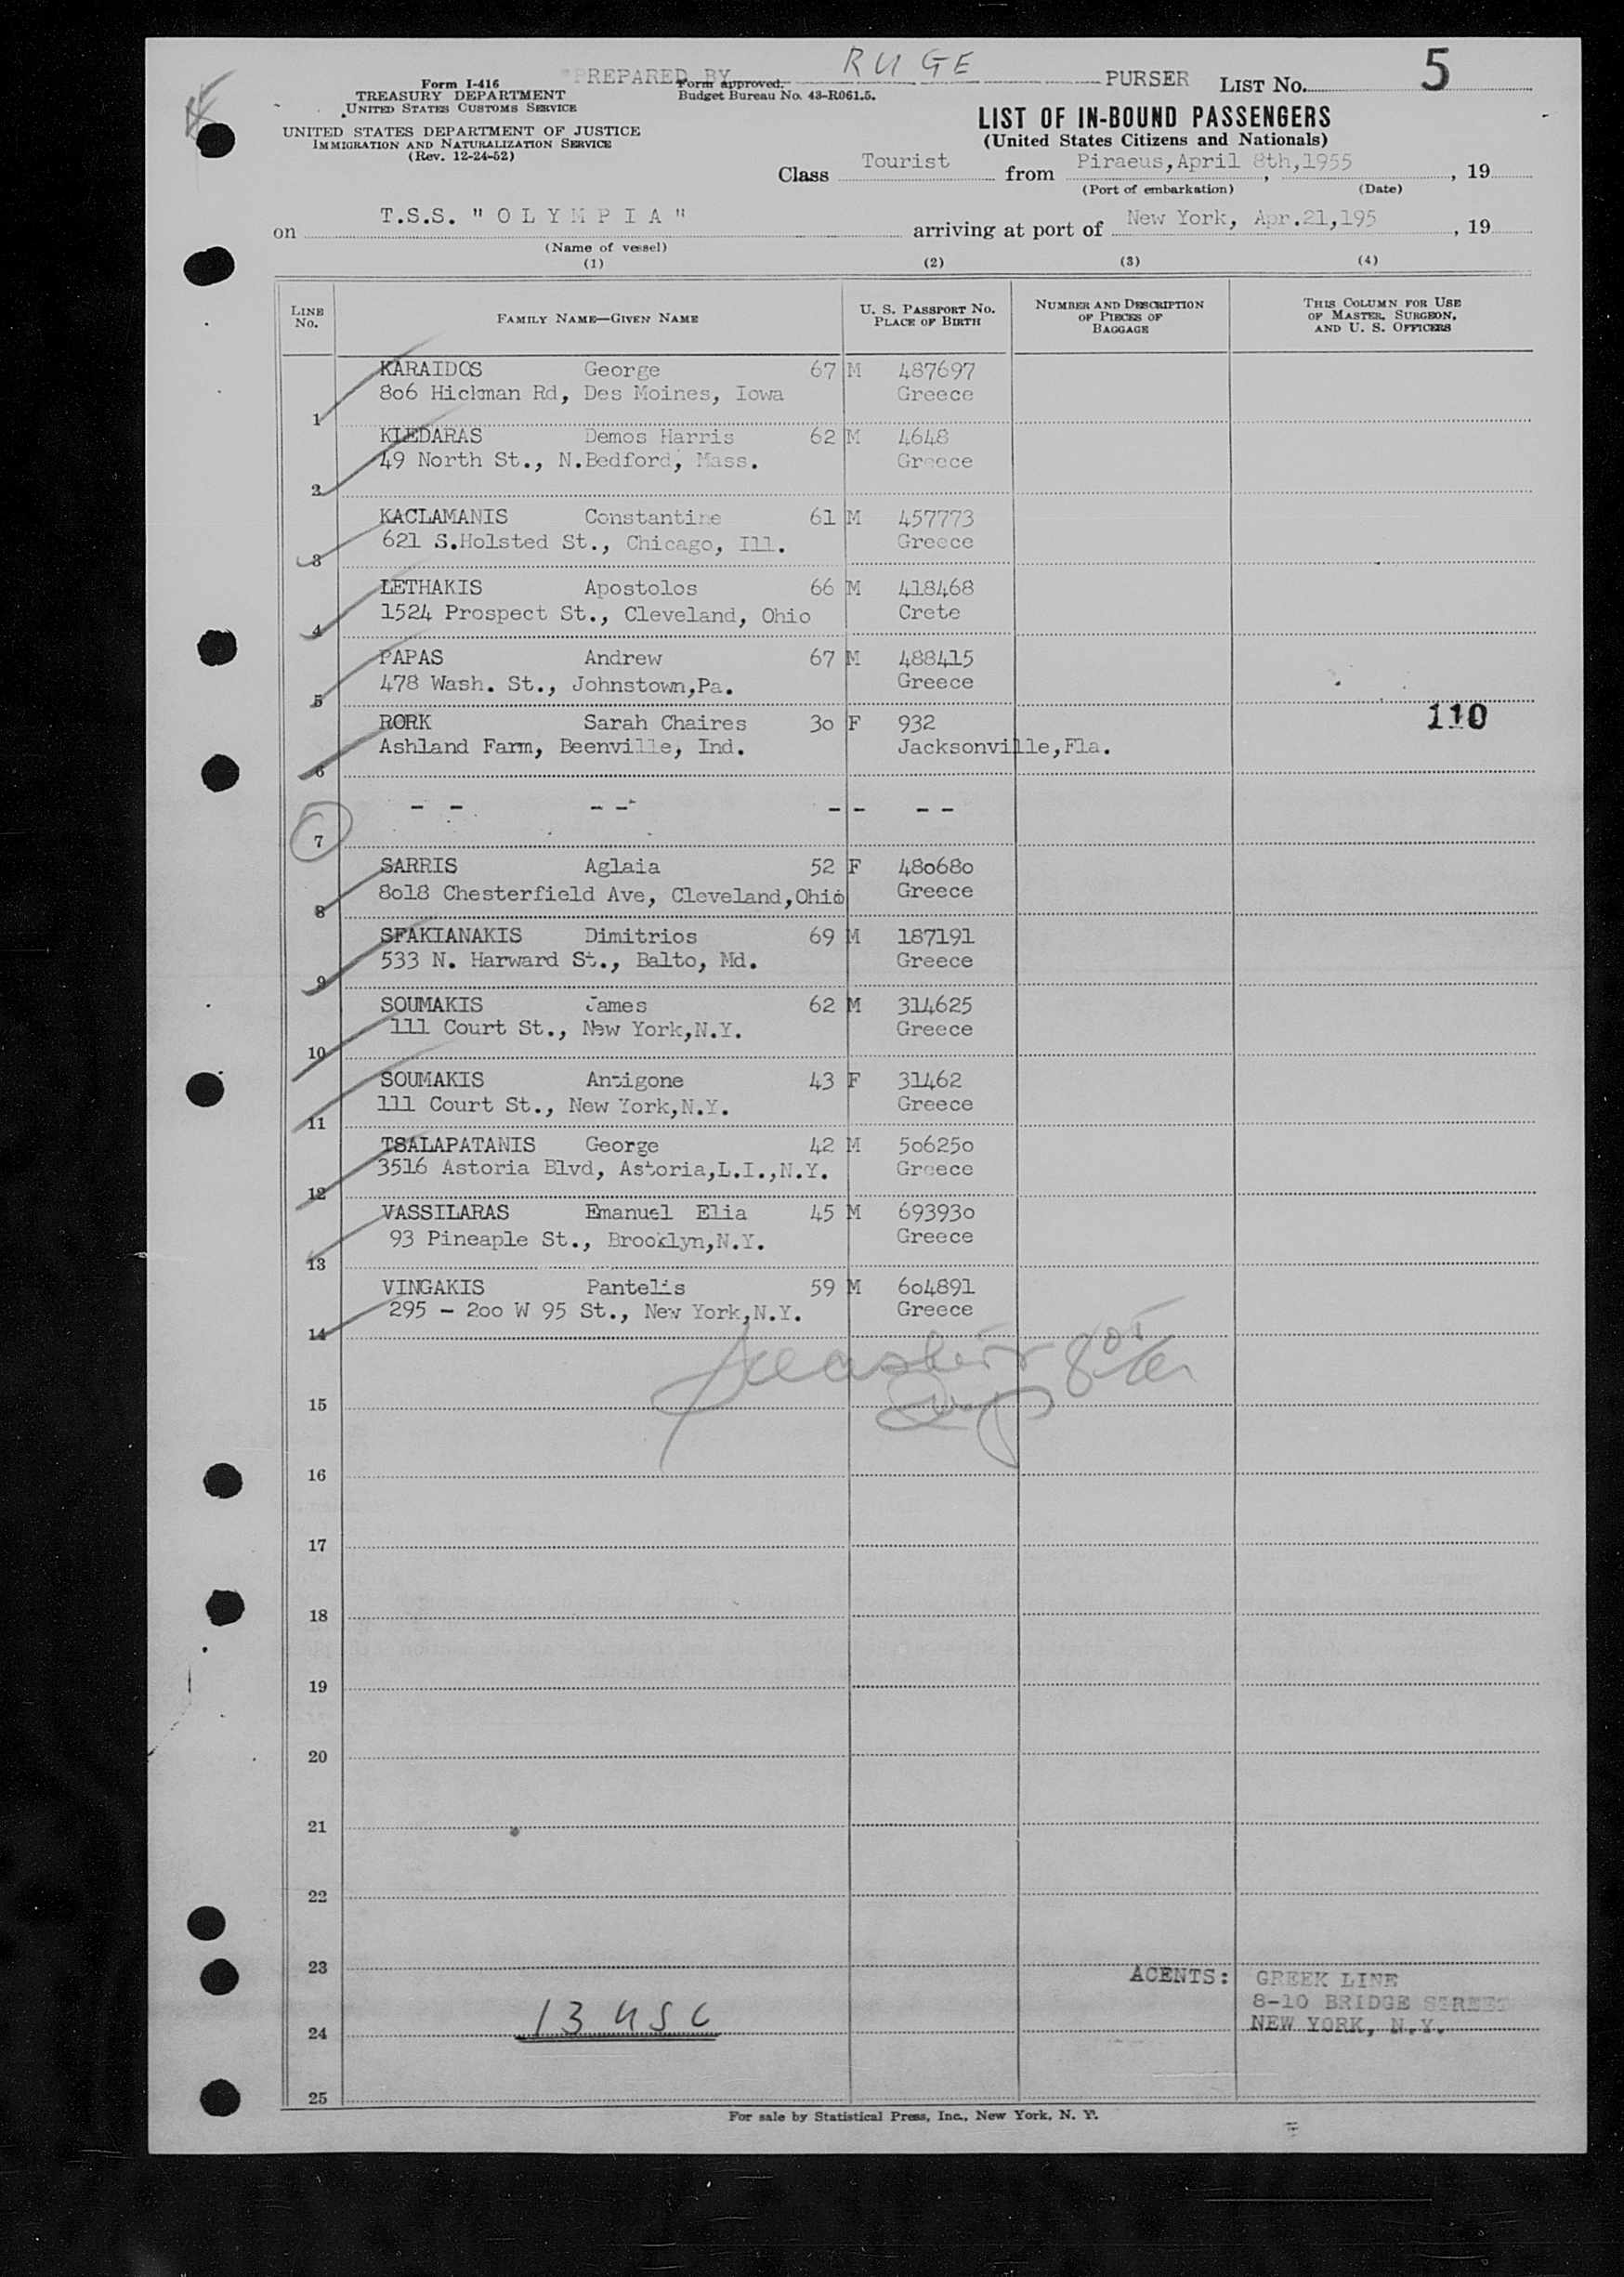 PREPARED BY RUGE PURSER LIST No. 5
Form I-416 Form approved.
TREASURY DEPARTMENT Budget Bureau No. 43-R061.5.
UNITED STATES CUSTOMS SERVICE
LIST OF IN-BOUND PASSENGERS
UNITED STATES DEPARTMENT OF JUSTICE
(United States Citizens and Nationals)
IMMIGRATION AND NATURALIZATION SERVICE
(Rev. 12-24-52)
Class Tourist from Piraeus,April 8th,1955, 19
(Port of embarkation) (Date)
on T.S.S. " O L Y M P I A " arriving at port of New York, Apr.21,195, 19
(Name of vessel)
(1) (2) (3) (4)
LINE No. FAMILY NAME—GIVEN NAME U. S. PASSPORT No. PLACE OF BIRTH NUMBER AND DESCRIPTION OF PIECES OF BAGGAGE THIS COLUMN FOR USE OF MASTER, SURGEON, AND U. S. OFFICERS
KARAIDOS George 67 M 487697
806 Hickman Rd, Des Moines, Iowa Greece
1
KLEDARAS Demos Harris 62 M 4648
49 North St., N.Bedford, Mass. Greece
2
KACLAMANIS Constantine 61 M 457773
621 S.Holsted St., Chicago, Ill. Greece
3
LETHAKIS Apostolos 66 M 418468
1524 Prospect St., Cleveland, Ohio Crete
4
PAPAS Andrew 67 M 488415
478 Wash. St., Johnstown,Pa. Greece
5
RORK Sarah Chaires 30 F 932 110
Ashland Farm, Beenville, Ind. Jacksonville,Fla.
6
- - - - - - - -
7
SARRIS Aglaia 52 F 480680
8018 Chesterfield Ave, Cleveland,Ohio Greece
8
SFAKIANAKIS Dimitrios 69 M 187191
533 N. Harward St., Balto, Md. Greece
9
SOUMAKIS James 62 M 314625
111 Court St., New York,N.Y. Greece
10
SOUMAKIS Antigone 43 F 31462
111 Court St., New York,N.Y. Greece
11
TSALAPATANIS George 42 M 506250
3516 Astoria Blvd, Astoria,L.I.,N.Y. Greece
12
VASSILARAS Emanuel Elia 45 M 693930
93 Pineaple St., Brooklyn,N.Y. Greece
13
VINGAKIS Pantelis 59 M 604891
295 - 200 W 95 St., New York,N.Y. Greece
14
15
16
17
18
19
20
21
22
23
AGENTS: GREEK LINE
8-10 BRIDGE STREET
24 13 USC NEW YORK, N.Y.
25
For sale by Statistical Press, Inc., New York, N. Y.